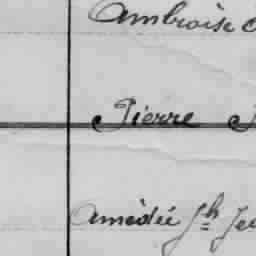 Ambroise
Pierre
Amédée Jh